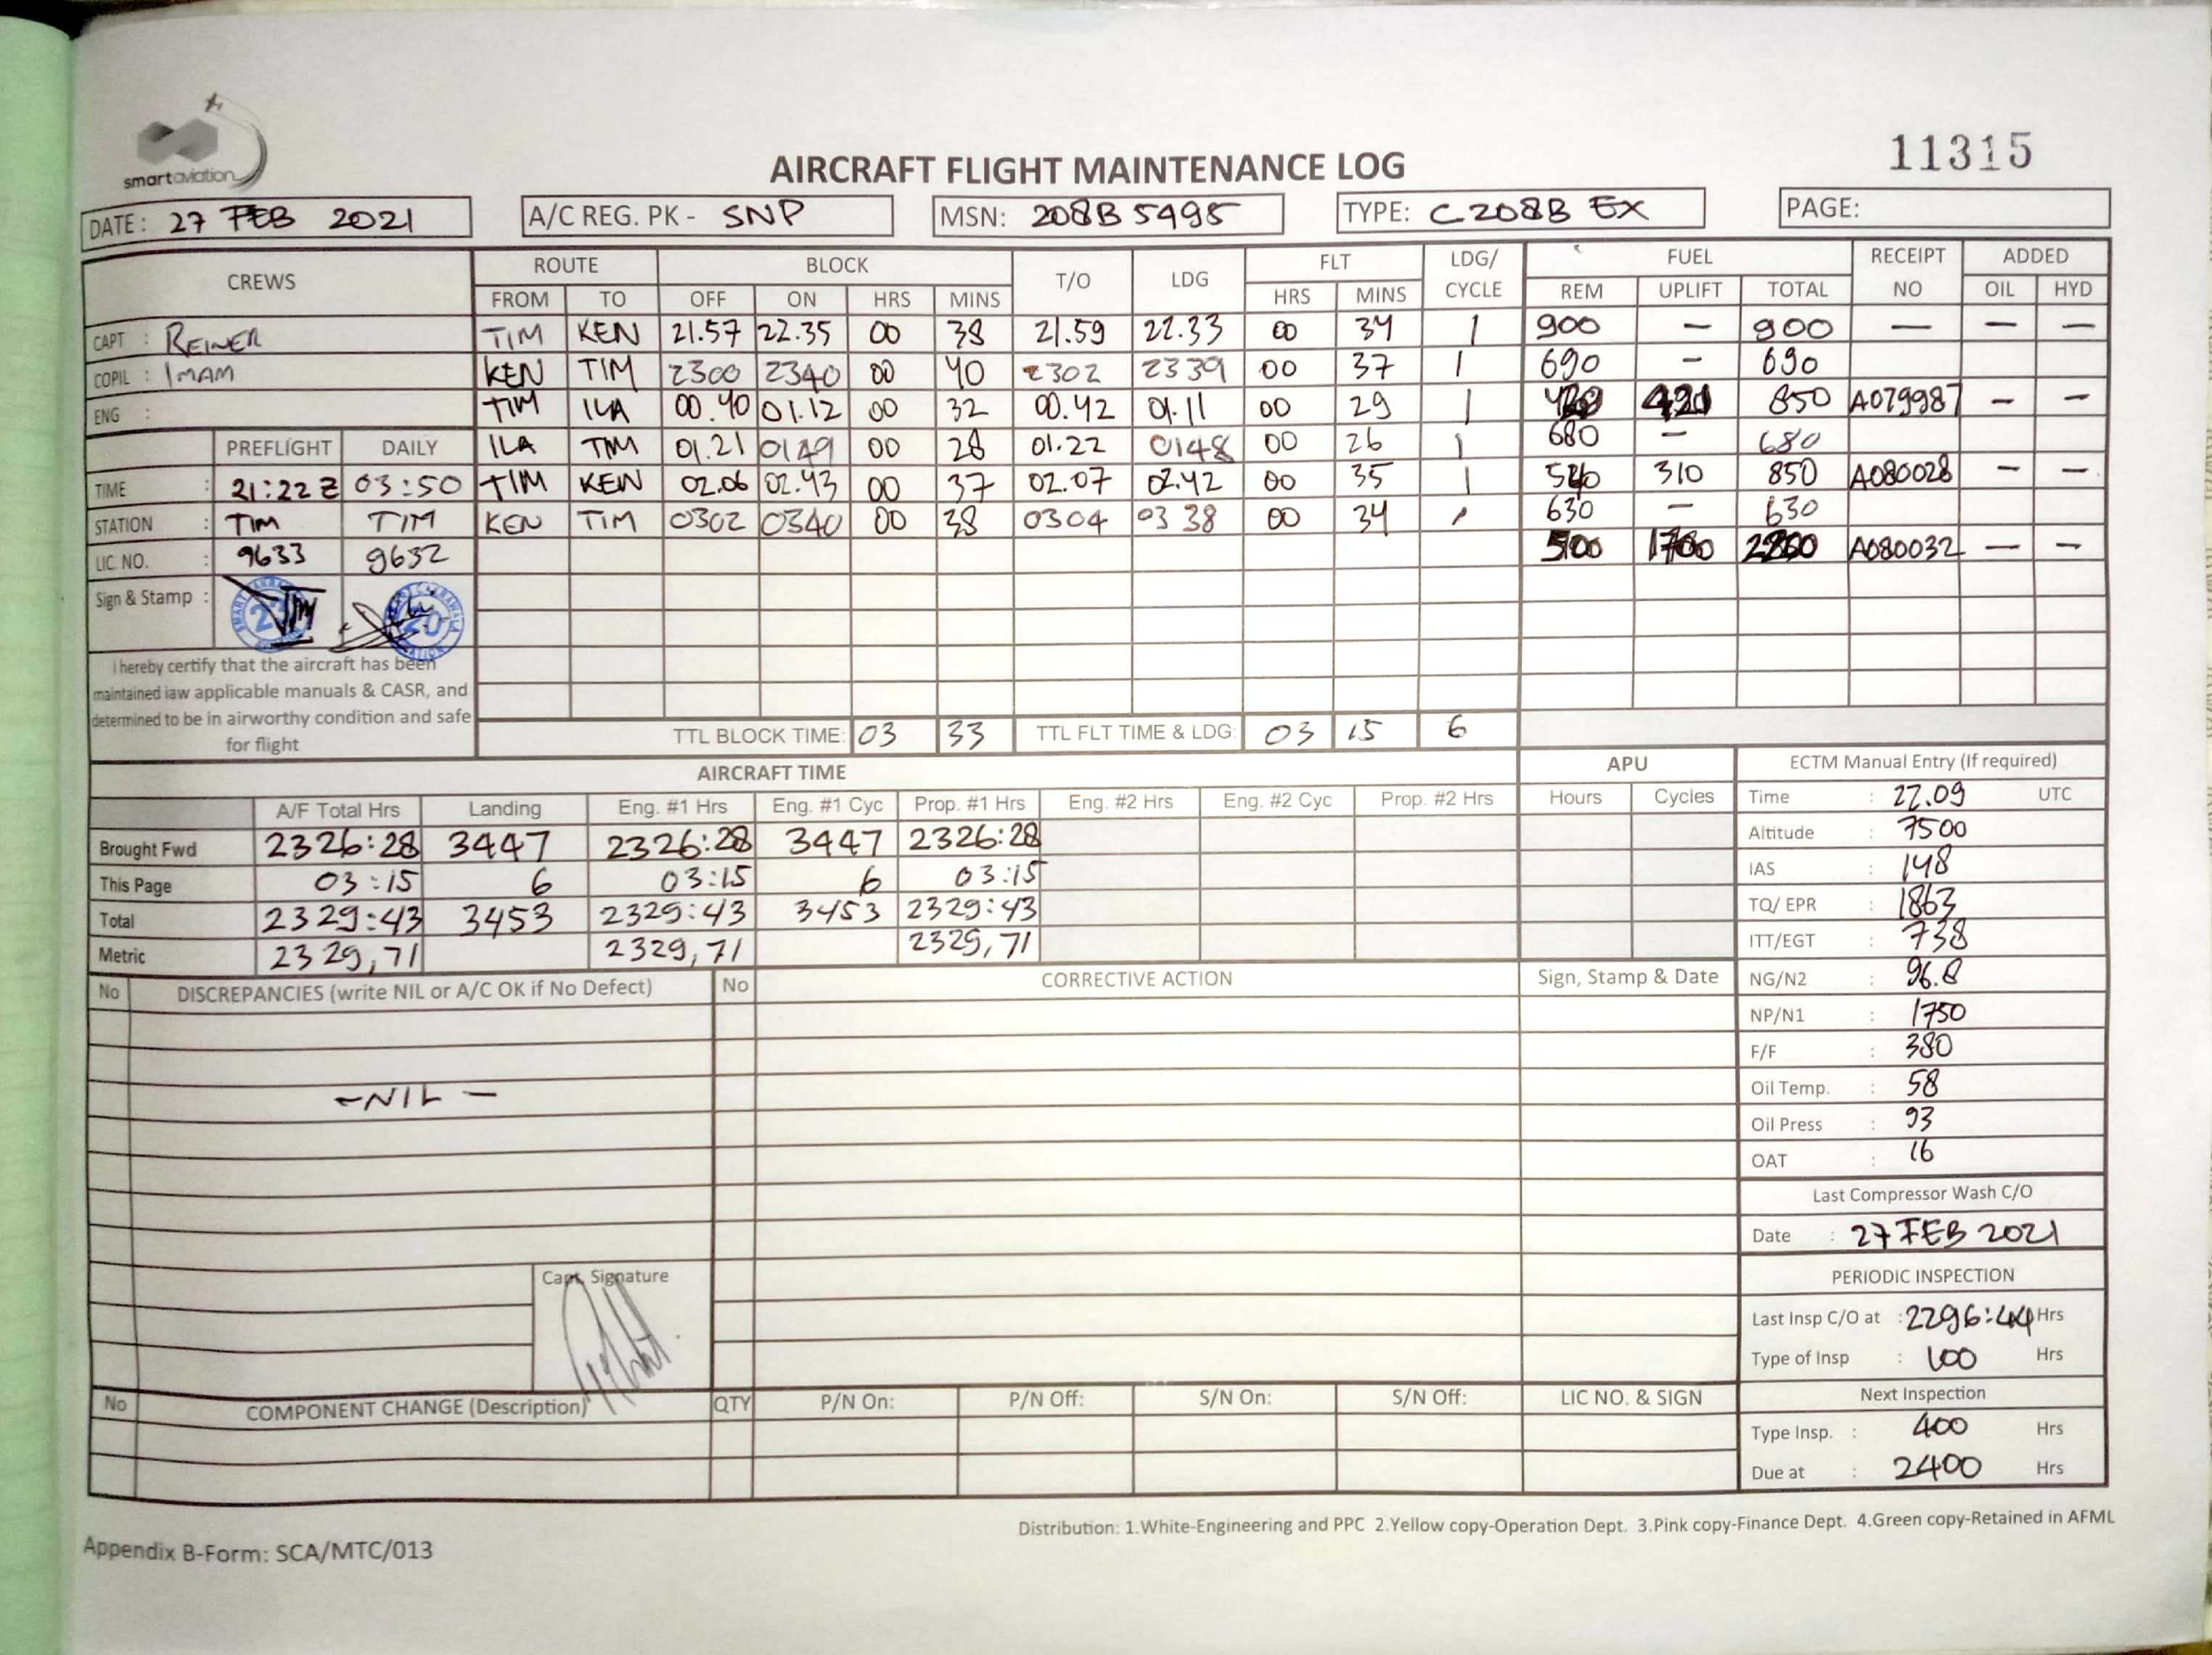 smart aviation
11315
AIRCRAFT FLIGHT MAINTENANCE LOG
DATE: 27 FEB 2021 A/C REG. PK - SNP MSN: 208B 5495 TYPE: C208B EX PAGE:
CREWS ROUTE BLOCK T/O LDG FLT LDG/ CYCLE FUEL RECEIPT NO ADDED
FROM TO OFF ON HRS MINS HRS MINS REM UPLIFT TOTAL OIL HYD
CAPT : REINER TIM KEN 21.57 22.35 00 38 21.59 22.33 00 34 1 900 — 900 — — —
COPIL : IMAM KEN TIM 2300 2340 00 40 2302 2339 00 37 1 690 — 690
ENG : TIM ILA 00.40 01.12 00 32 00.42 01.11 00 29 1 850 A079987 — —
PREFLIGHT DAILY ILA TIM 01.21 0149 00 28 01.22 0148 00 26 1 680 — 680
TIME : 21:22 Z 03:50 TIM KEN 02.06 02.43 00 37 02.07 02.42 00 35 1 540 310 850 A080028 — —
STATION : TIM TIM KEN TIM 0302 0340 00 38 0304 03 38 00 34 1 630 — 630
LIC. NO. : 9633 9632 A080032 — —
Sign & Stamp :
I hereby certify that the aircraft has been
maintained iaw applicable manuals & CASR, and
determined to be in airworthy condition and safe
for flight
TTL BLOCK TIME: 03 33 TTL FLT TIME & LDG: 03 15 6
AIRCRAFT TIME APU
A/F Total Hrs Landing Eng. #1 Hrs Eng. #1 Cyc Prop. #1 Hrs Eng. #2 Hrs Eng. #2 Cyc Prop. #2 Hrs Hours Cycles
Brought Fwd 2326:28 3447 2326:28 3447 2326:28
This Page 03:15 6 03:15 6 03:15
Total 2329:43 3453 2329:43 3453 2329:43
Metric 2329,71 2329,71 2329,71
ECTM Manual Entry (If required)
Time : 22.09 UTC
Altitude : 7500
IAS : 148
TQ/ EPR : 1863
ITT/EGT : 738
NG/N2 : 96.8
NP/N1 : 1750
F/F : 380
Oil Temp. : 58
Oil Press : 93
OAT : 16
Last Compressor Wash C/O
Date : 27 FEB 2021
PERIODIC INSPECTION
Last Insp C/O at : 2296:44 Hrs
Type of Insp : 100 Hrs
Next Inspection
Type Insp. : 400 Hrs
Due at : 2400 Hrs
No DISCREPANCIES (write NIL or A/C OK if No Defect) No CORRECTIVE ACTION Sign, Stamp & Date
- NIL -
Capt. Signature
No COMPONENT CHANGE (Description) QTY P/N On: P/N Off: S/N On: S/N Off: LIC NO. & SIGN
Distribution: 1.White-Engineering and PPC 2.Yellow copy-Operation Dept. 3.Pink copy-Finance Dept. 4.Green copy-Retained in AFML
Appendix B-Form: SCA/MTC/013